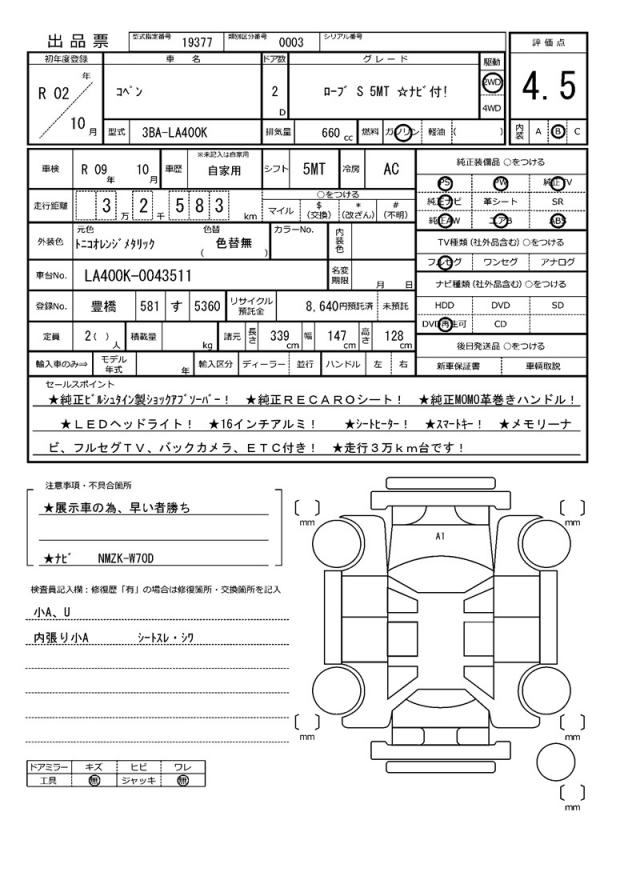 出品票
型式指定番号 19377 類別区分番号 0003 シリアル番号
初年度登録 車名 ドア数 グレード 駆動 評価点
R 02 年 10 月
コペン
2 D
ローブ S 5MT ☆ナビ付!
2WD
4WD
4.5
型式 3BA-LA400K 排気量 660 cc 燃料 ガソリン 軽油 ( ) 内装 A B C
車検 R 09 年 10 月 車歴 ※未記入は自家用 自家用 シフト 5MT 冷房 AC
純正装備品 ○をつける
PS PW 純正TV
純正ナビ 革シート SR
純正AW エアB ABS
走行距離 3 万 2 千 5 8 3 km
○をつける
マイル $(交換) *(改ざん) #(不明)
TV種類(社外品含む)○をつける
フルセグ ワンセグ アナログ
外装色 元色 トニコオレンジメタリック 色替 ( 色替無 ) カラーNo. 内装色
ナビ種類(社外品含む)○をつける
HDD DVD SD
DVD再生可 CD
車台No. LA400K-0043511 名変期限 月 日
登録No. 豊橋 581 す 5360 リサイクル預託金 8,640円預託済 未預託
定員 2( ) 人 積載量 kg 諸元 長さ 339 cm 幅 147 cm 高さ 128 cm
後日発送品 ○をつける
新車保証書 車輌取説
輸入車のみ⇒ モデル年式 年 輸入区分 ディーラー 並行 ハンドル 左 右
セールスポイント
★純正ビルシュタイン製ショックアブソーバー! ★純正RECAROシート! ★純正MOMO革巻きハンドル!
★LEDヘッドライト! ★16インチアルミ! ★シートヒーター! ★スマートキー! ★メモリーナ
ビ、フルセグTV、バックカメラ、ETC付き! ★走行3万km台です!
注意事項・不具合箇所
★展示車の為、早い者勝ち
★ナビ NMZK-W70D
検査員記入欄:修復歴「有」の場合は修復箇所・交換箇所を記入
小A、U
内張り小A シートスレ・シワ
ドアミラー キズ ヒビ ワレ
工具 無 ジャッキ 無
A1
[ ] mm
[ ] mm
[ ] mm
[ ] mm
[ ] mm